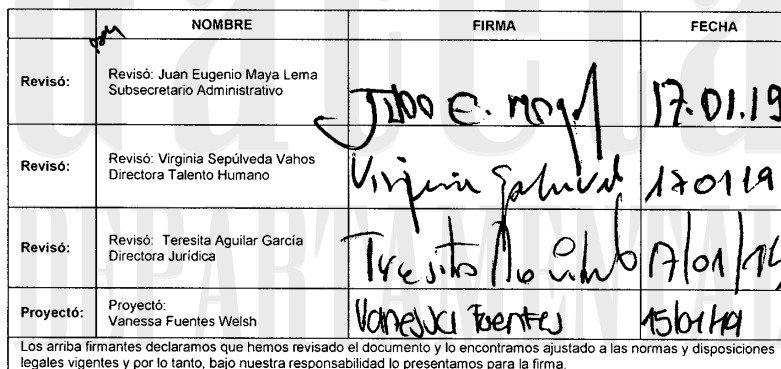 NOMBRE FIRMA FECHA
Revisó: Revisó: Juan Eugenio Maya Lema
Subsecretario Administrativo
17.01.19
Revisó: Revisó: Virginia Sepúlveda Vahos
Directora Talento Humano
Virginia 170119
Revisó: Revisó: Teresita Aguilar García
Directora Jurídica
Teresita 17/01/19
Proyectó: Proyectó:
Vanessa Fuentes Welsh
Vanessa Fuentes 15/01/19
Los arriba firmantes declaramos que hemos revisado el documento y lo encontramos ajustado a las normas y disposiciones
legales vigentes y por lo tanto, bajo nuestra responsabilidad lo presentamos para la firma.